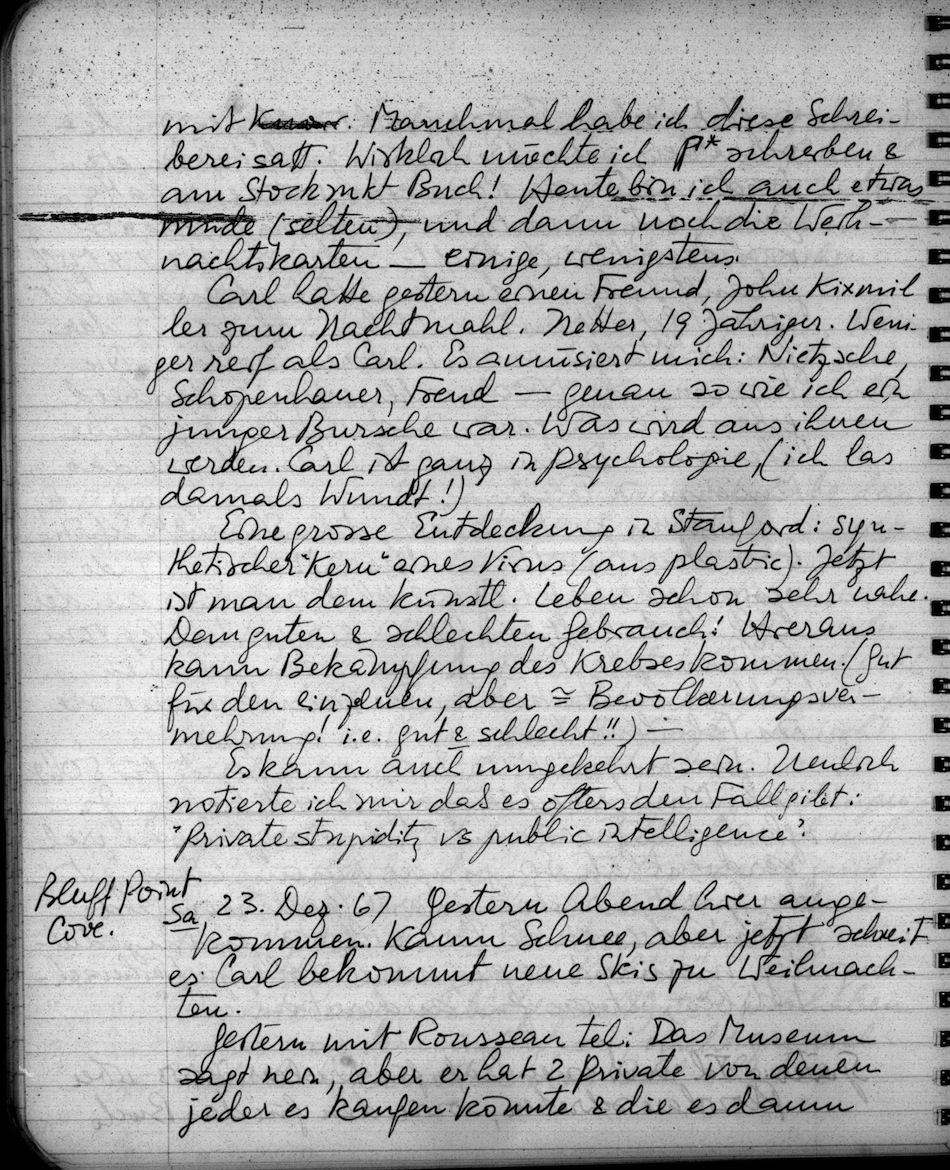 mit Knorr. Manchmal habe ich diese Schrei-
berei satt. Wirklich möchte ich P* schreiben &
am Stockmkt Buch! Heute bin ich auch etwas
müde (selten), und dann noch die Weih-
nachtskarten — einige, wenigstens.
Carl hatte gestern einen Freund, John Kixmil
ler zum Nachtmahl. Netter, 19 Jähriger. Weni-
ger reif als Carl. Es amüsiert mich: Nietzsche,
Schopenhauer, Freud — genau so wie ich ein
junger Bursche war. Was wird aus ihnen
werden. Carl ist ganz in Psychologie, (ich las
damals Wundt!)
Eine grosse Entdeckung in Stanford: syn-
thetischer "Kern" eines Virus (aus plastic). Jetzt
ist man dem künstl. Leben schon sehr nahe.
Dem guten & schlechten Gebrauch! Hieraus
kann Bekämpfung des Krebses kommen. (gut
für den einzelnen, aber ≅ Bevölkerungsver-
mehrung! i.e. gut & schlecht!!) —
Es kann auch umgekehrt sein. Neulich
notierte ich mir daß es öfters den Fall gibt:
"Private stupidity vs public intelligence".
Bluff Point
Cove.
Sa 23. Dez. 67 Gestern Abend hier ange-
kommen. Kaum Schnee, aber jetzt schneit
es. Carl bekommt neue Skis zu Weihnach-
ten.
Gestern mit Rousseau tel: Das Museum
sagt nein, aber er hat 2 Private von denen
jeder es kaufen könnte & die es dann